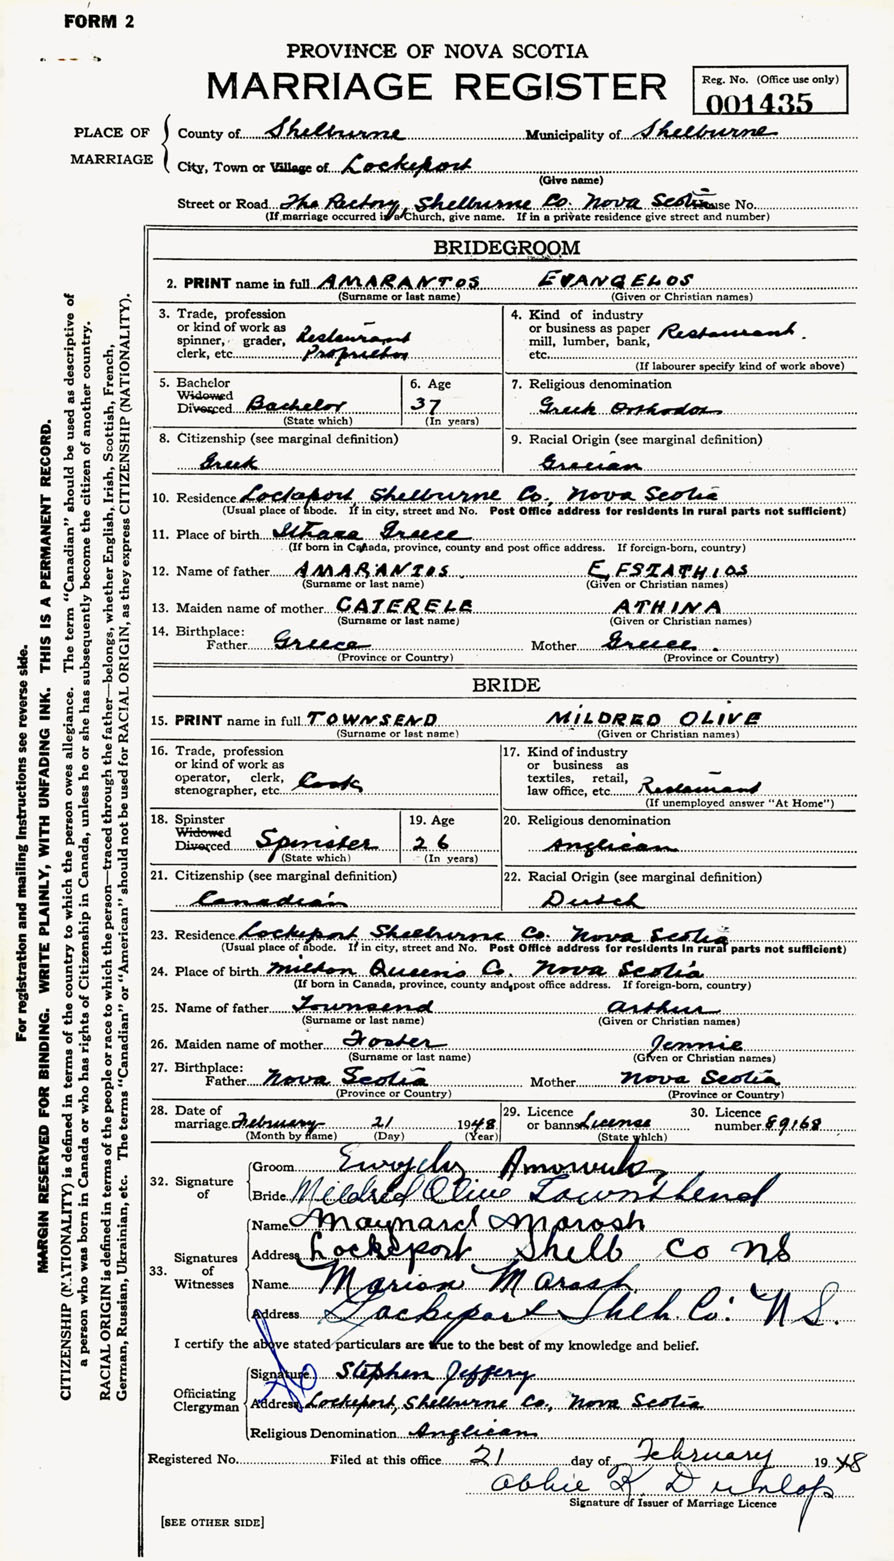 FORM 2
PROVINCE OF NOVA SCOTIA
MARRIAGE REGISTER
Reg. No. (Office use only)
001435
PLACE OF MARRIAGE
County of Shelburne Municipality of Shelburne
City, Town or Village of Lockeport
(Give name)
Street or Road The Rectory, Shelburne Co. Nova Scotia use No.
(If marriage occurred in a Church, give name. If in a private residence give street and number)
BRIDEGROOM
2. PRINT name in full AMARANTOS EVANGELOS
(Surname or last name) (Given or Christian names)
3. Trade, profession or kind of work as spinner, grader, clerk, etc. Restaurant Proprietor
4. Kind of industry or business as paper mill, lumber, bank, etc. Restaurant.
(If labourer specify kind of work above)
5. Bachelor Widowed Divorced Bachelor
(State which)
6. Age 37
(In years)
7. Religious denomination
Greek Orthodox
8. Citizenship (see marginal definition)
Greek
9. Racial Origin (see marginal definition)
Grecian
10. Residence Lockeport Shelburne Co. Nova Scotia
(Usual place of abode. If in city, street and No. Post Office address for residents in rural parts not sufficient)
11. Place of birth Ithaca Greece
(If born in Canada, province, county and post office address. If foreign-born, country)
12. Name of father AMARANTOS EFSTATHIOS
(Surname or last name) (Given or Christian names)
13. Maiden name of mother CATERELE ATHINA
(Surname or last name) (Given or Christian names)
14. Birthplace:
Father Greece Mother Greece.
(Province or Country) (Province or Country)
BRIDE
15. PRINT name in full TOWNSEND MILDRED OLIVE
(Surname or last name) (Given or Christian names)
16. Trade, profession or kind of work as operator, clerk, stenographer, etc. Cook
17. Kind of industry or business as textiles, retail, law office, etc. Restaurant
(If unemployed answer "At Home")
18. Spinster Widowed Divorced Spinister
(State which)
19. Age 26
(In years)
20. Religious denomination
Anglican
21. Citizenship (see marginal definition)
Canadian
22. Racial Origin (see marginal definition)
Dutch
23. Residence Lockeport Shelburne Co. Nova Scotia
(Usual place of abode. If in city, street and No. Post Office address for residents in rural parts not sufficient)
24. Place of birth Milton Queens Co. Nova Scotia
(If born in Canada, province, county and post office address. If foreign-born, country)
25. Name of father Townsend Arthur
(Surname or last name) (Given or Christian names)
26. Maiden name of mother Foster Jennie
(Surname or last name) (Given or Christian names)
27. Birthplace:
Father Nova Scotia Mother Nova Scotia
(Province or Country) (Province or Country)
28. Date of marriage February 21 1948
(Month by name) (Day) (Year)
29. Licence or banns License
(State which)
30. Licence number 89168
32. Signature of
Groom
Bride Mildred Olive Townshend
33. Signatures of Witnesses
Name Maynard Marash
Address Lockeport Shelb Co NS
Name Marion Marash
Address Lockeport Shelb. Co. N.S.
I certify the above stated particulars are true to the best of my knowledge and belief.
Officiating Clergyman
Signature Stephen Jeffery
Address Lockeport, Shelburne Co., Nova Scotia
Religious Denomination Anglican
Registered No. Filed at this office 21 day of February 1948
Abbie K Dunlop
Signature of Issuer of Marriage Licence
[SEE OTHER SIDE]
For registration and mailing instructions see reverse side.
MARGIN RESERVED FOR BINDING. WRITE PLAINLY, WITH UNFADING INK. THIS IS A PERMANENT RECORD.
CITIZENSHIP (NATIONALITY) is defined in terms of the country to which the person owes allegiance. The term "Canadian" should be used as descriptive of
a person who was born in Canada or who has rights of Citizenship in Canada, unless he or she has subsequently become the citizen of another country.
RACIAL ORIGIN is defined in terms of the people or race to which the person—traced through the father—belongs, whether English, Irish, Scottish, French,
German, Russian, Ukrainian, etc. The terms "Canadian" or "American" should not be used for RACIAL ORIGIN, as they express CITIZENSHIP (NATIONALITY).